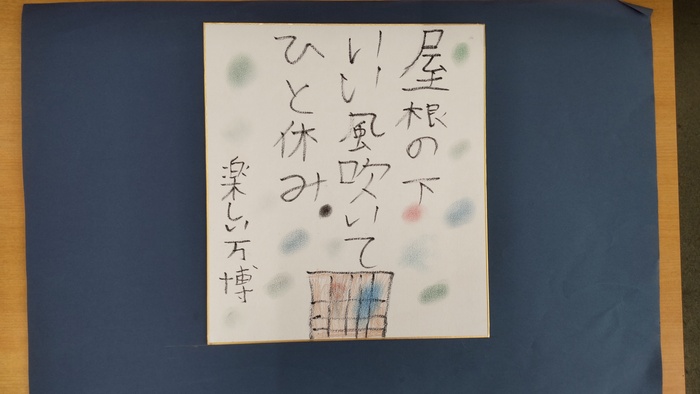 屋根の下
いい風吹いて
ひと休み
楽しい万博